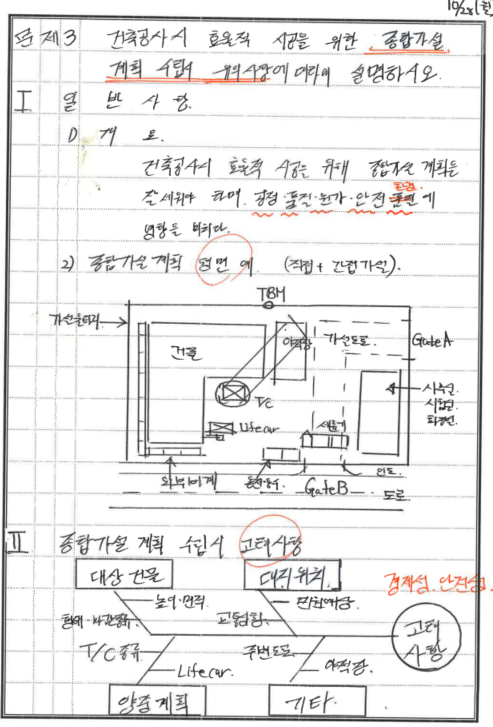 10/28(월)
문제3 건축공사시 효율적 시공을 위한 종합가설
계획 수립시 유의사항에 대하여 설명하시오.
I 일반사항.
1) 개요.
건축공사시 효율적 시공을 위해 종합가설 계획을
잘 세워야 하며, 공정·품질·원가·안전 환경에
영향을 미치다.
2) 종합가설 계획 평면 예 (직접 + 간접가설).
TBM
가설울타리
건물
야적장
가설도로
Gate A
사무실.
시험실.
화장실.
T/C
Lifecar
세륜기
인도
GateB
도로
II 종합가설 계획 수립시 고려사항
경제성. 안전성.
대상 건물
대지위치.
높이·면적
교통현황
T/C 종류
Lifecar.
주변도로
야적장.
양중계획
기타.
고려
사항